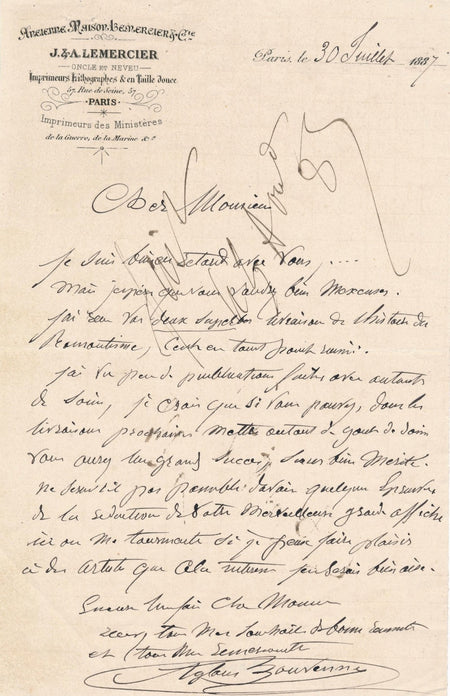 Ancienne Maison Lemercier & Cie
J. & A. LEMERCIER
ONCLE ET NEVEU
Imprimeurs Lithographes & en Taille douce
57, Rue de Seine, 57
PARIS
Imprimeurs des Ministères
de la Guerre, de la Marine &c
Paris, le 30 Juillet 1887
Cher Monsieur
je suis bien en retard avec vous, ....
Mais j'espère que vous voudrez bien m'excuser.
j'ai reçu vos deux superbes livraison de l'histoire du
Romantisme, c'est en tout point réussi.
j'ai vu peu de publications faites avec autant
de soin, je crois que si vous pouvez, dans les
livraisons prochaines mettre autant de gout de soin
vous aurez un grand succès, succès bien mérité.
ne serait il pas possible d'avoir quelques épreuves
de la réduction de votre merveilleuse grande affiche
ici on me tourmente si je peux faire plaisir
à des artistes que cela intéresse j'en serais bien aise.
Encore une fois cher Monsieur
recevez tous mes souhaits de bonne santé
et tous mes
Aglaüs Bouvenne